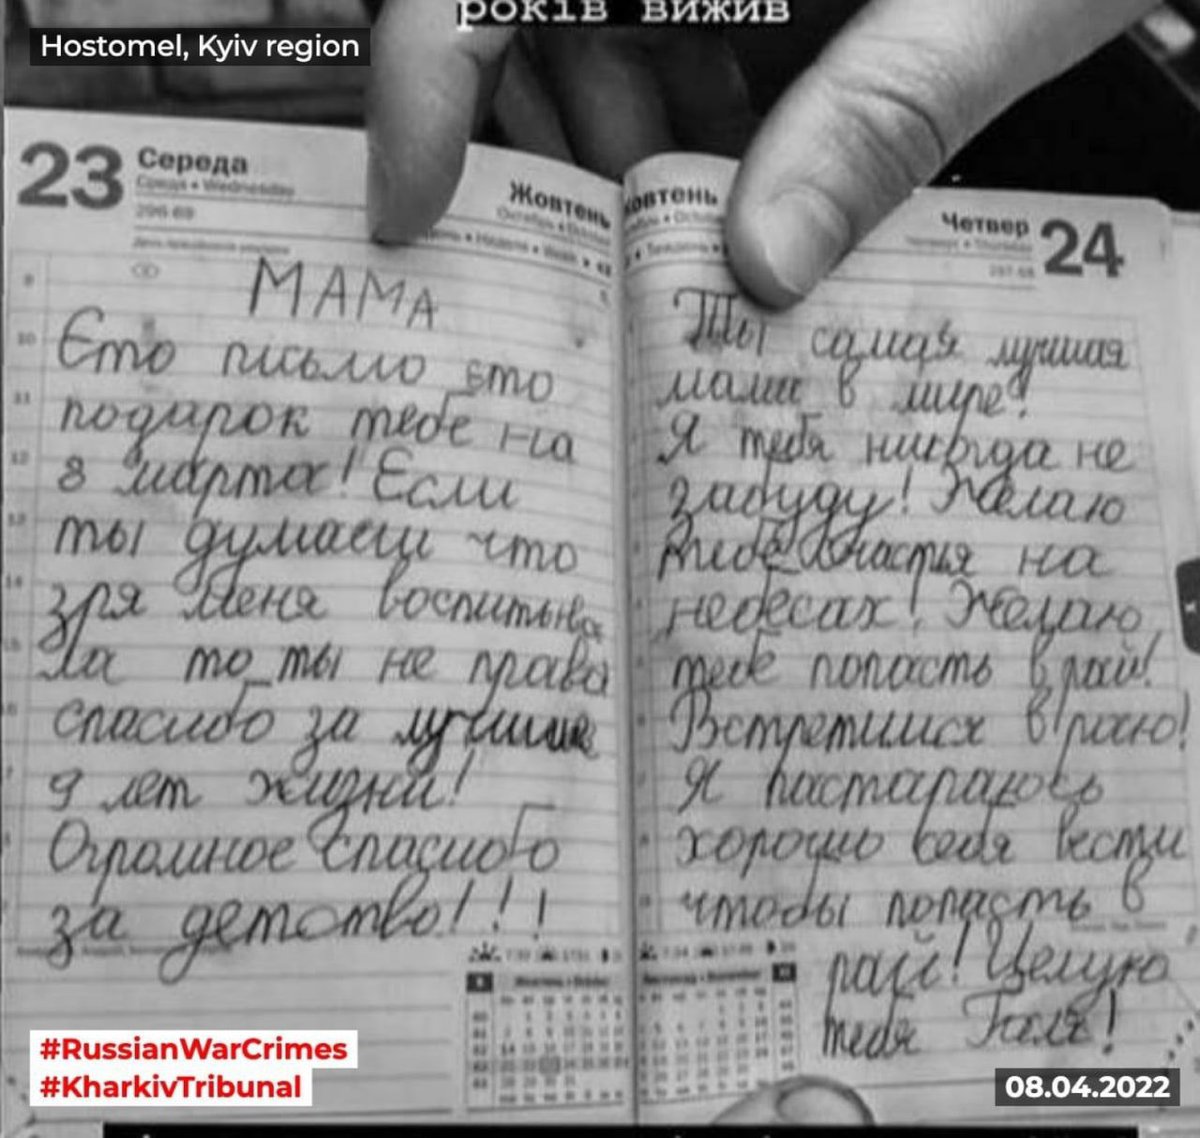 років вижив
Hostomel, Kyiv region
23 Середа
Среда • Wednesday
296-69
Жовтень
МАМА
Єто письмо єто
подарок тебе на
8 марта! Если
ты думаеш что
зря меня воспитыва
ла то ты не права
спасибо за лучшие
9 лет жизни!
Огромное спасибо
за детство!!!
Жовтень
Четвер 24
Четверг • Thursday
297-68
Ты самая лучшая
мама в мире!
Я тебя никогда не
забуду! Желаю
тебе счастья на
небесах! Желаю
тебе попасть в рай!
Встретимся в раю!
Я пастараюсь
хорошо себя вести
чтобы попасть в
рай! Целую
тебя Галя!
#RussianWarCrimes
#KharkivTribunal
08.04.2022